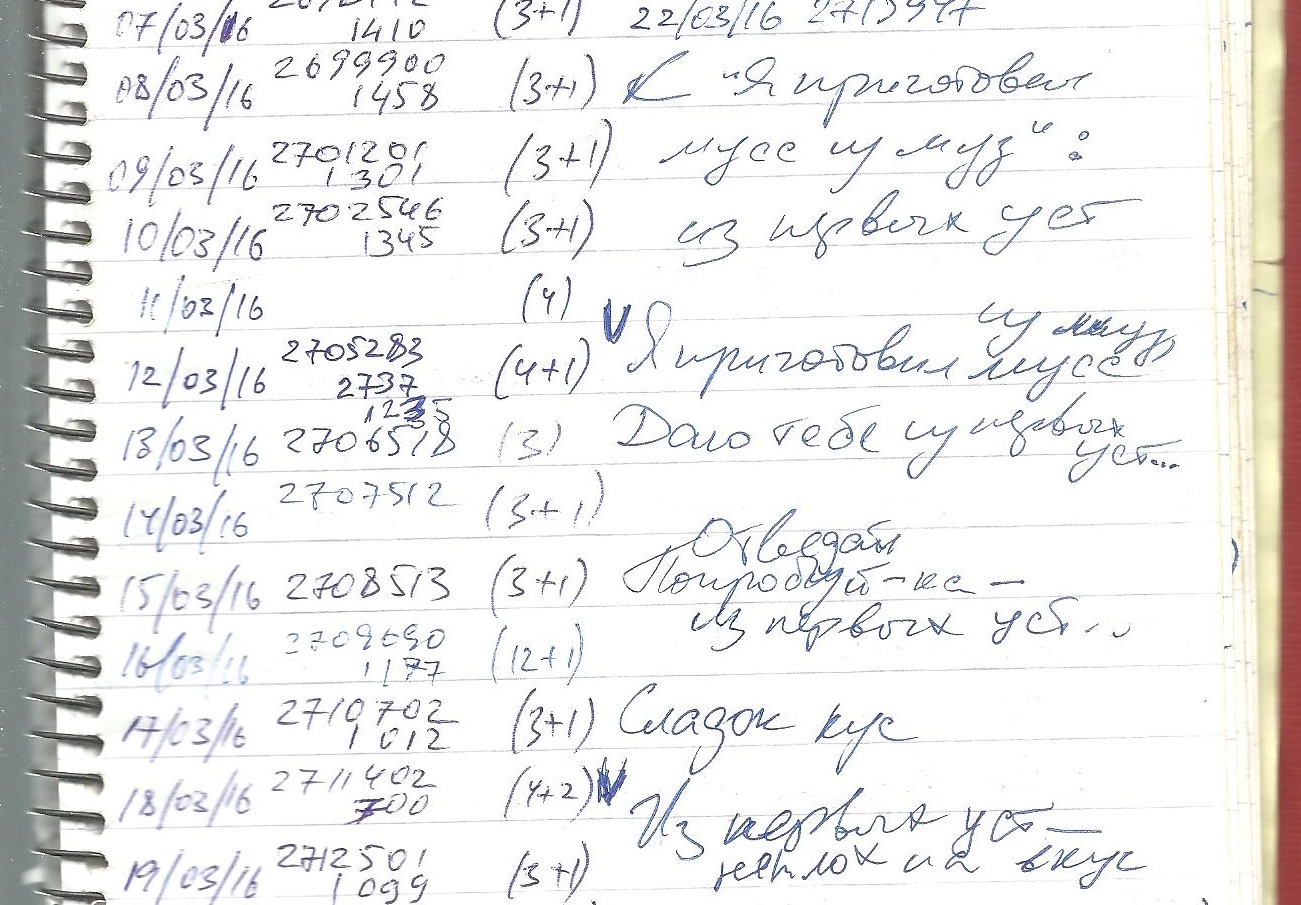 07/03/16 1410 (3+1) 22/03/16
08/03/16 2699900 (3+1) К "Я приготовил
1458
09/03/16 2701201 (3+1) мусс из муз":
1301
10/03/16 2702546 (3+1) из первых уст
1345
11/03/16 (4)
из муз
12/03/16 2705283 (4+1) V Я приготовил мусс
2737
1235
13/03/16 2706518 (3) Даю тебе из первых
уст...
14/03/16 2707512 (3+1)
Отведай
15/03/16 2708513 (3+1) Попробуй-ка —
из первых уст...
16/03/16 2709690 (12+1)
1177
17/03/16 2710702 (3+1) Сладок кус
1012
18/03/16 2711402 (4+2) V
700
Из первых уст —
19/03/16 2712501 (3+1) неплох на вкус
1099